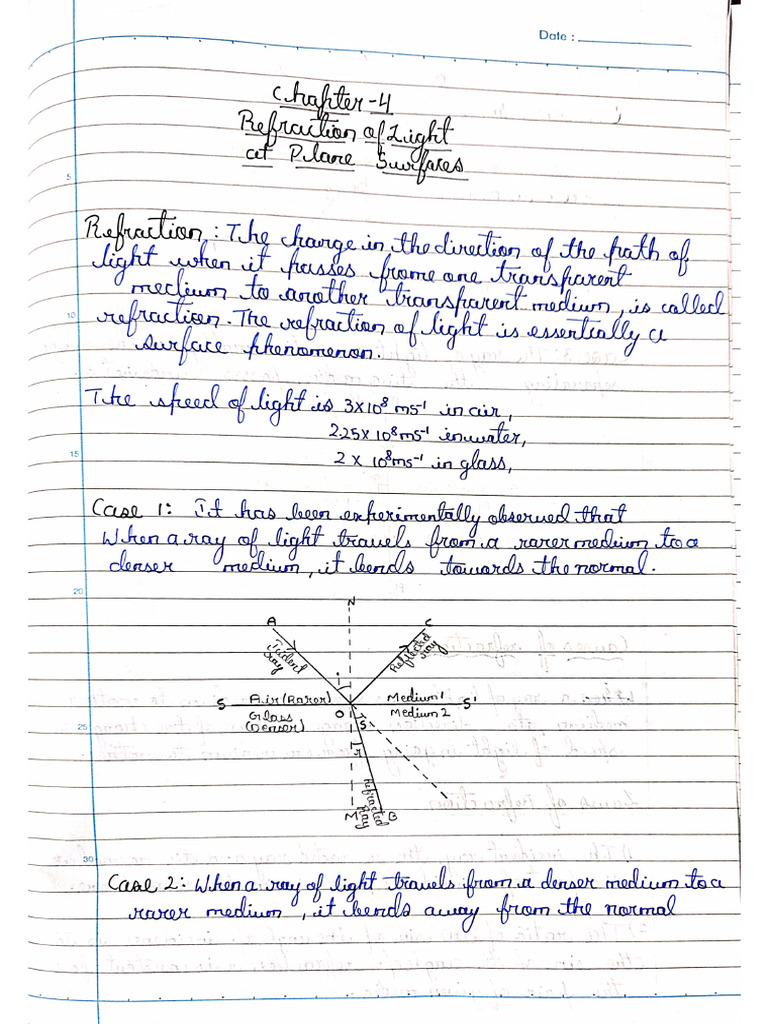 Date :
Chapter-4
Refraction of Light
at Plane Surfaces
5
Refraction : The change in the direction of the path of
light when it passes frome one transparent
medium to another transparent medium, is called
10
refraction. The refraction of light is essentially a
surface phenomenon.
The speed of light is 3×10⁸ ms⁻¹ in air,
2.25×10⁸ms⁻¹ in water,
15
2 × 10⁸ms⁻¹ in glass,
Case 1: It has been experimentally observed that
When a ray of light travels from a rarer medium to a
denser medium, it bends towards the normal.
20
N
A C
Incident ray
Reflected ray
i
S Air (Rarer) Medium 1 S'
O
Glass Medium 2
(Denser)
25
δ
r
Refracted Ray
M B
30
Case 2: When a ray of light travels from a denser medium to a
rarer medium, it bends away from the normal